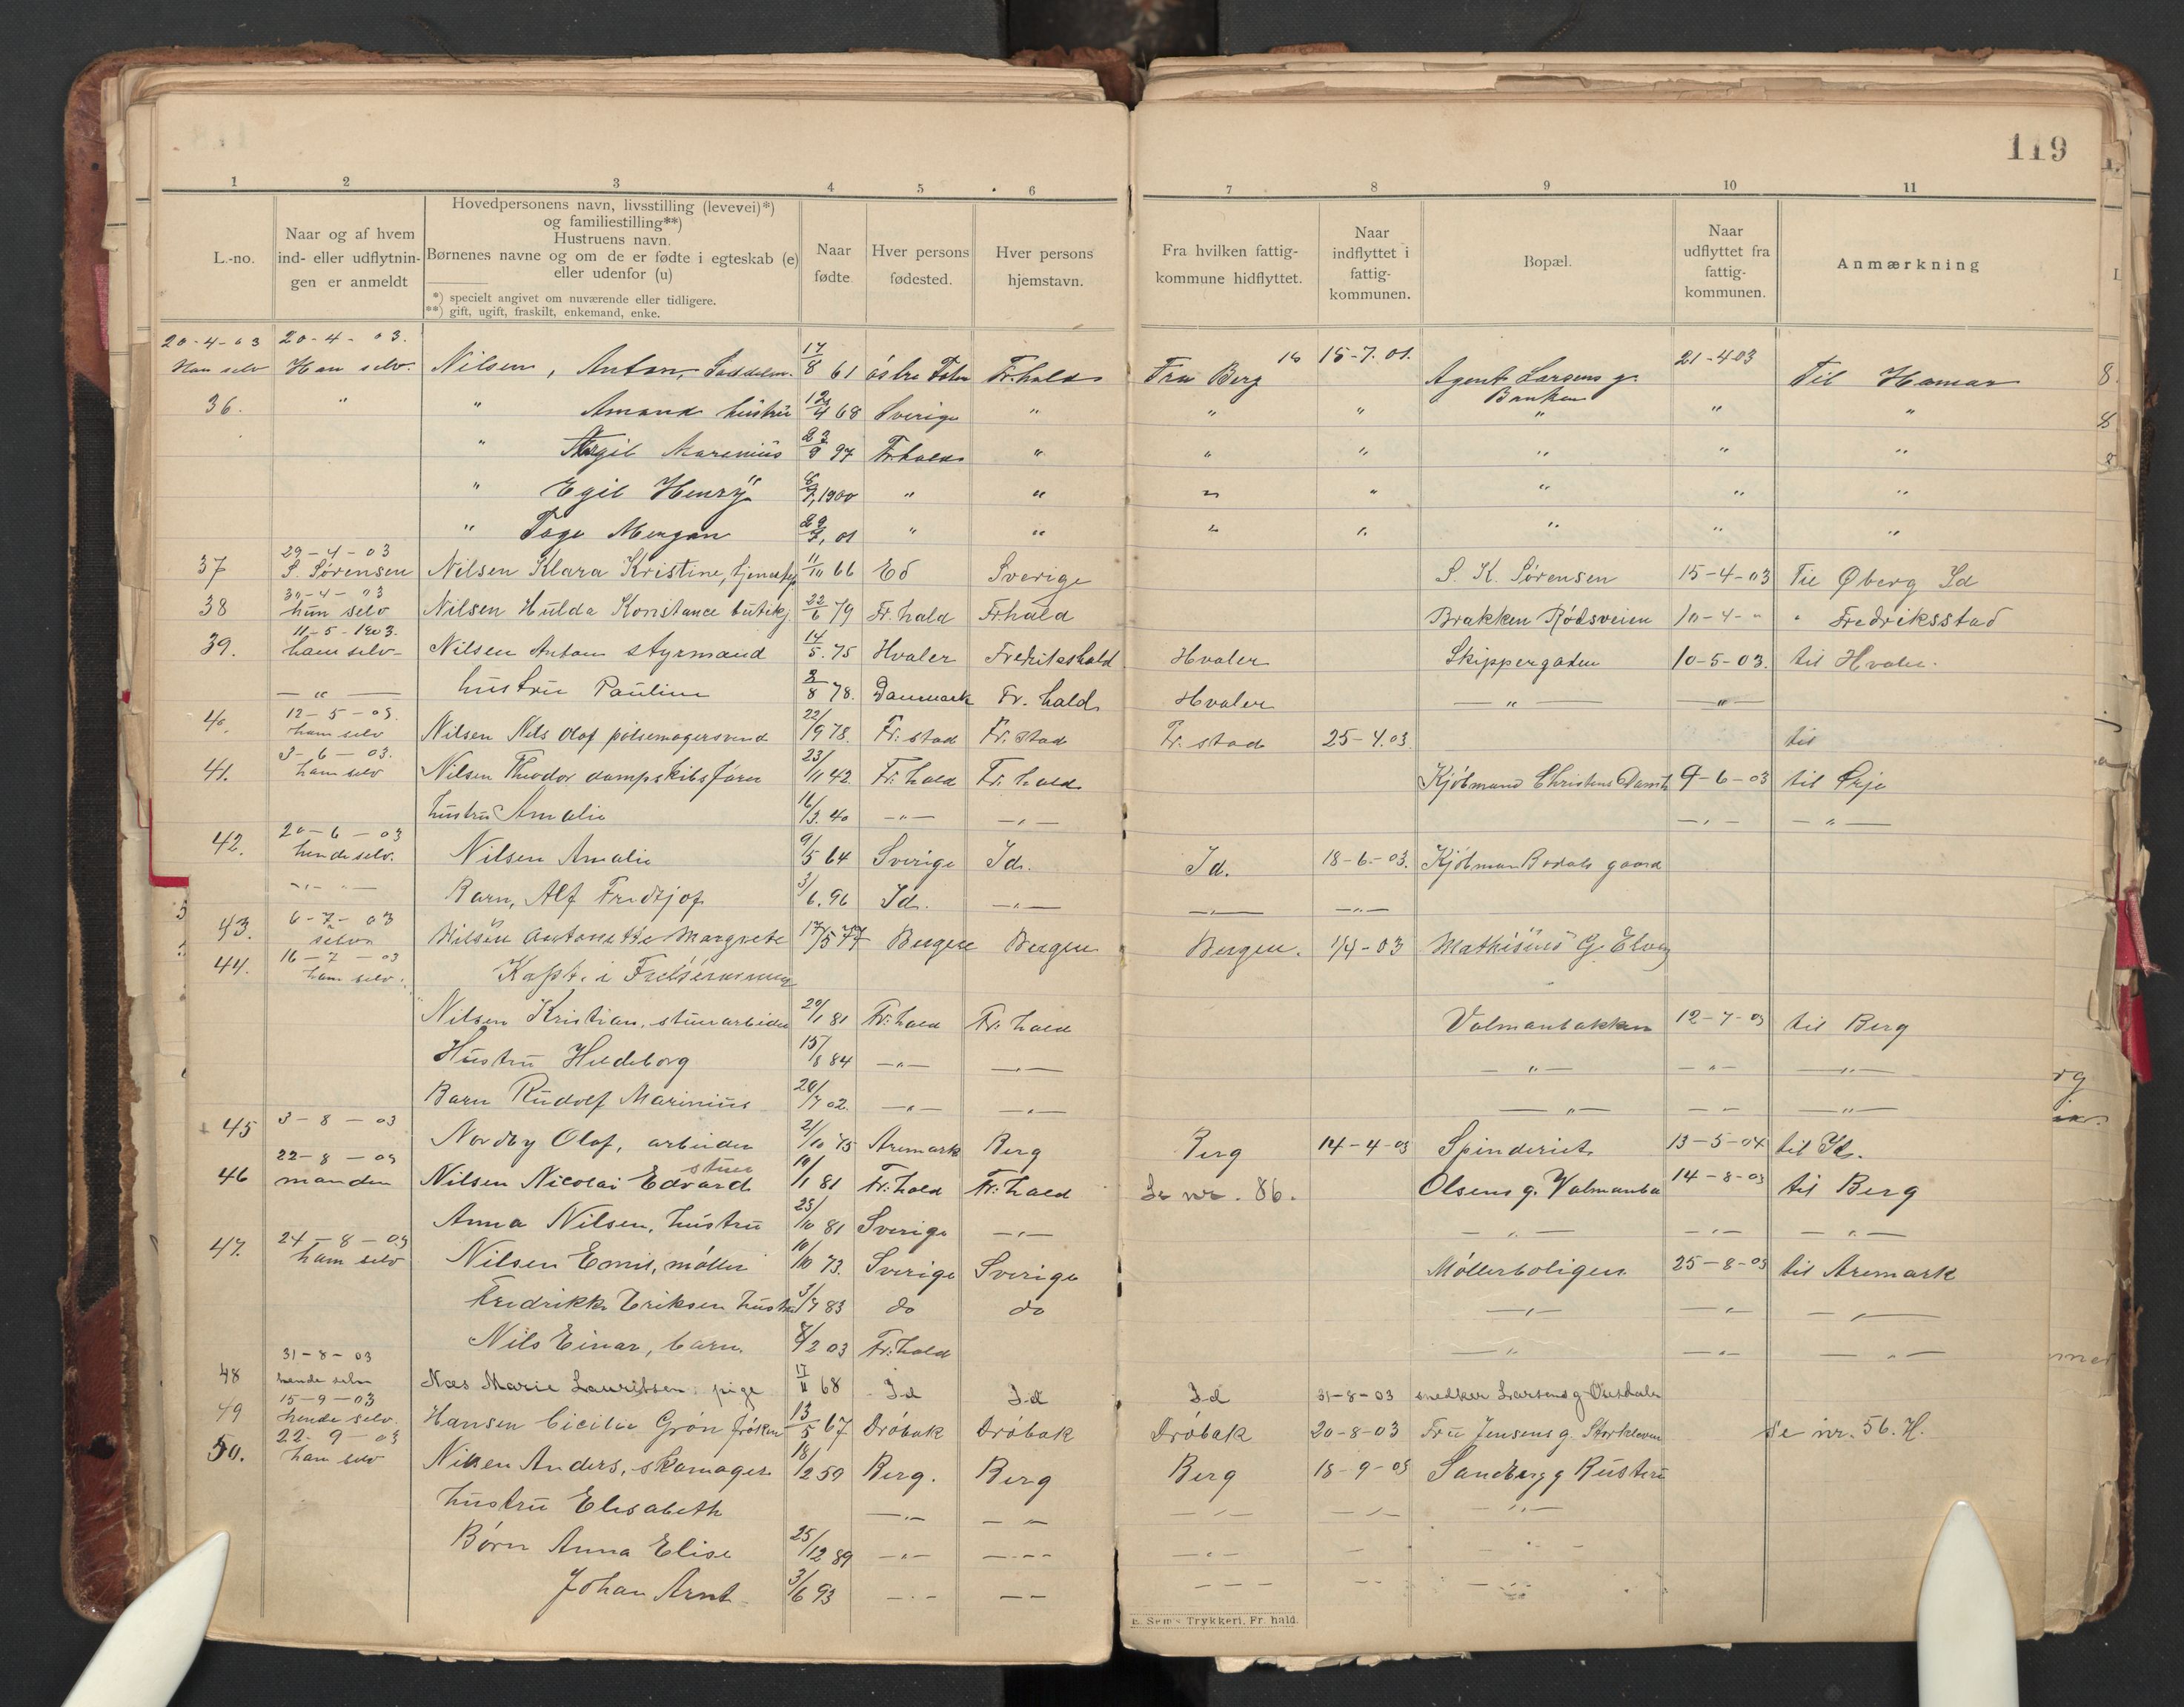 119
1 2 3 4 5 6 7 8 9 10 11
L.-no.
Naar og af hvem ind- eller udflytnin- gen er anmeldt
Hovedpersonens navn, livsstilling (levevei)*)
og familiestilling**)
Hustruens navn.
Børnenes navne og om de er fødte i egteskab (e)
eller udenfor (u)
*) specielt angivet om nuværende eller tidligere.
**) gift, ugift, fraskilt, enkemand, enke.
Naar fødte
Hver persons fødested.
Hver persons hjemstavn.
Fra hvilken fattig- kommune hidflyttet.
Naar indflyttet i fattig- kommunen.
Bopæl.
Naar udflyttet fra fattig- kommunen.
Anmærkning
20-4-03 20-4-03.
Han selv Han selv. Nilsen, Anton, 17/8 61 østre Fr.hald Fra Berg 15-7.01. Agent Larsens g. Banken 21-4-03 Til Hamar
36. " " Amand hustru 12/4 68 Sverige " " " " " "
" Marenius 97 Fr.hald " " " " " "
" Egil Henry 1900 " " " " " " "
" Tage 01 " " " " " " "
29-4-03
37 S. Sørensen Nilsen Klara Kristine, 11/10 66 Ed Sverige S. K. Sørensen 15-4-03 Til Øberg Id
30-4-03
38 hun selv Nilsen Hulda Konstance butikj. 22/6 79 Fr.hald Fr.hald Brakken Rødsveien 10-4-" " Fredriksstad
11-5-1903.
39. ham selv Nilsen Anton styrmand 14/5. 75 Hvaler Fredrikshald Hvaler Skippergaden 10-5-03. til Hvaler.
— " — hustru Pauline 8 78. Danmark Fr. hald Hvaler — " — — " —
12-5-03.
40. ham selv Nilsen Nils Olaf pølsemagersvend 22/9 78. Fr: stad Fr. stad Fr. stad 25-4.03. til
3-6-03.
41. ham selv Nilsen Theodor dampskibsfører 23/11 42. Fr. hald Fr. hald Kjøbmand Christens 9-6-03 til Ørje
hustru Amalie 16/3. 40 — " — — " — — " — — " —
20-6-03
42. hende selv. Nilsen Amalie 9/5 64 Sverige Id. Id. 18-6-03. Kjøbman gaard
— " — Barn, Alf Fredtjof 3/6. 96 Id. — " — — " — — " —
6-7-03
43. selv Nilsen Antonette Margrete 17/5 77 Bergen Bergen Bergen. 1/4-03 Mathisens G.
16-7-03
44. ham selv. Kapt. i Frelsesarmeen
Nilsen Kristian, stuearbeider 20/1 81 Fr:hald Fr: hald Valmanbakken 12-7-03 til Berg
Hustru Hildeborg 15/8 84 — " — — " — — " — — " — — " —
Barn Rudolf Marinius 20/7 02. — " — — " — — " — — " — — " —
3-8-03
45 Nordby Olaf, arbeider 2/10 75 Aremark Berg Berg 14-4-03 Spinderiet 13-5-04 til Id.
22-8-03 stue
46 manden Nilsen Nicolai Edvard 10/1 81 Fr:hald Fr:hald Se nr. 86. Olsens g. 14-8-03 til Berg
Anna Nilsen, hustru 25/10 81 Sverige — " — — " — — " — — " —
24-8-03
47. ham selv Nilsen Emil, møller 10/10 73. Sverige Sverige Møllerboligen 25-8-03 til Aremark
Fredrikke Eriksen hustru 3/7 83 do do — " — — " — — " —
Nils Einar, barn. 2 03 Fr:hald — " — — " — — " —
31-8-03
48 hende selv Næs Marie Lauritsen pige 17/11 68 Id Id Id 31-8-03 snedker Larsens g
15-9-03
49 hende selv. Hansen Cicilie Grøn frøken 13/5 67 Drøbak Drøbak Drøbak 20-8-03 Fru Jensens g. Se nr. 56. H.
22-9-03
50. ham selv Nilsen Anders, skomager 18/12 59 Berg. Berg Berg 18-9-03 Sandberg g
hustru Elisabeth — " — — " — — " — — " — — " —
Børn Anna Elise 25/12 89 — " — — " — — " — — — " —
Johan Arnt 3/6 93 — " — — — — — — — — — " —
E. Sem's Trykkeri. Fr. hald.